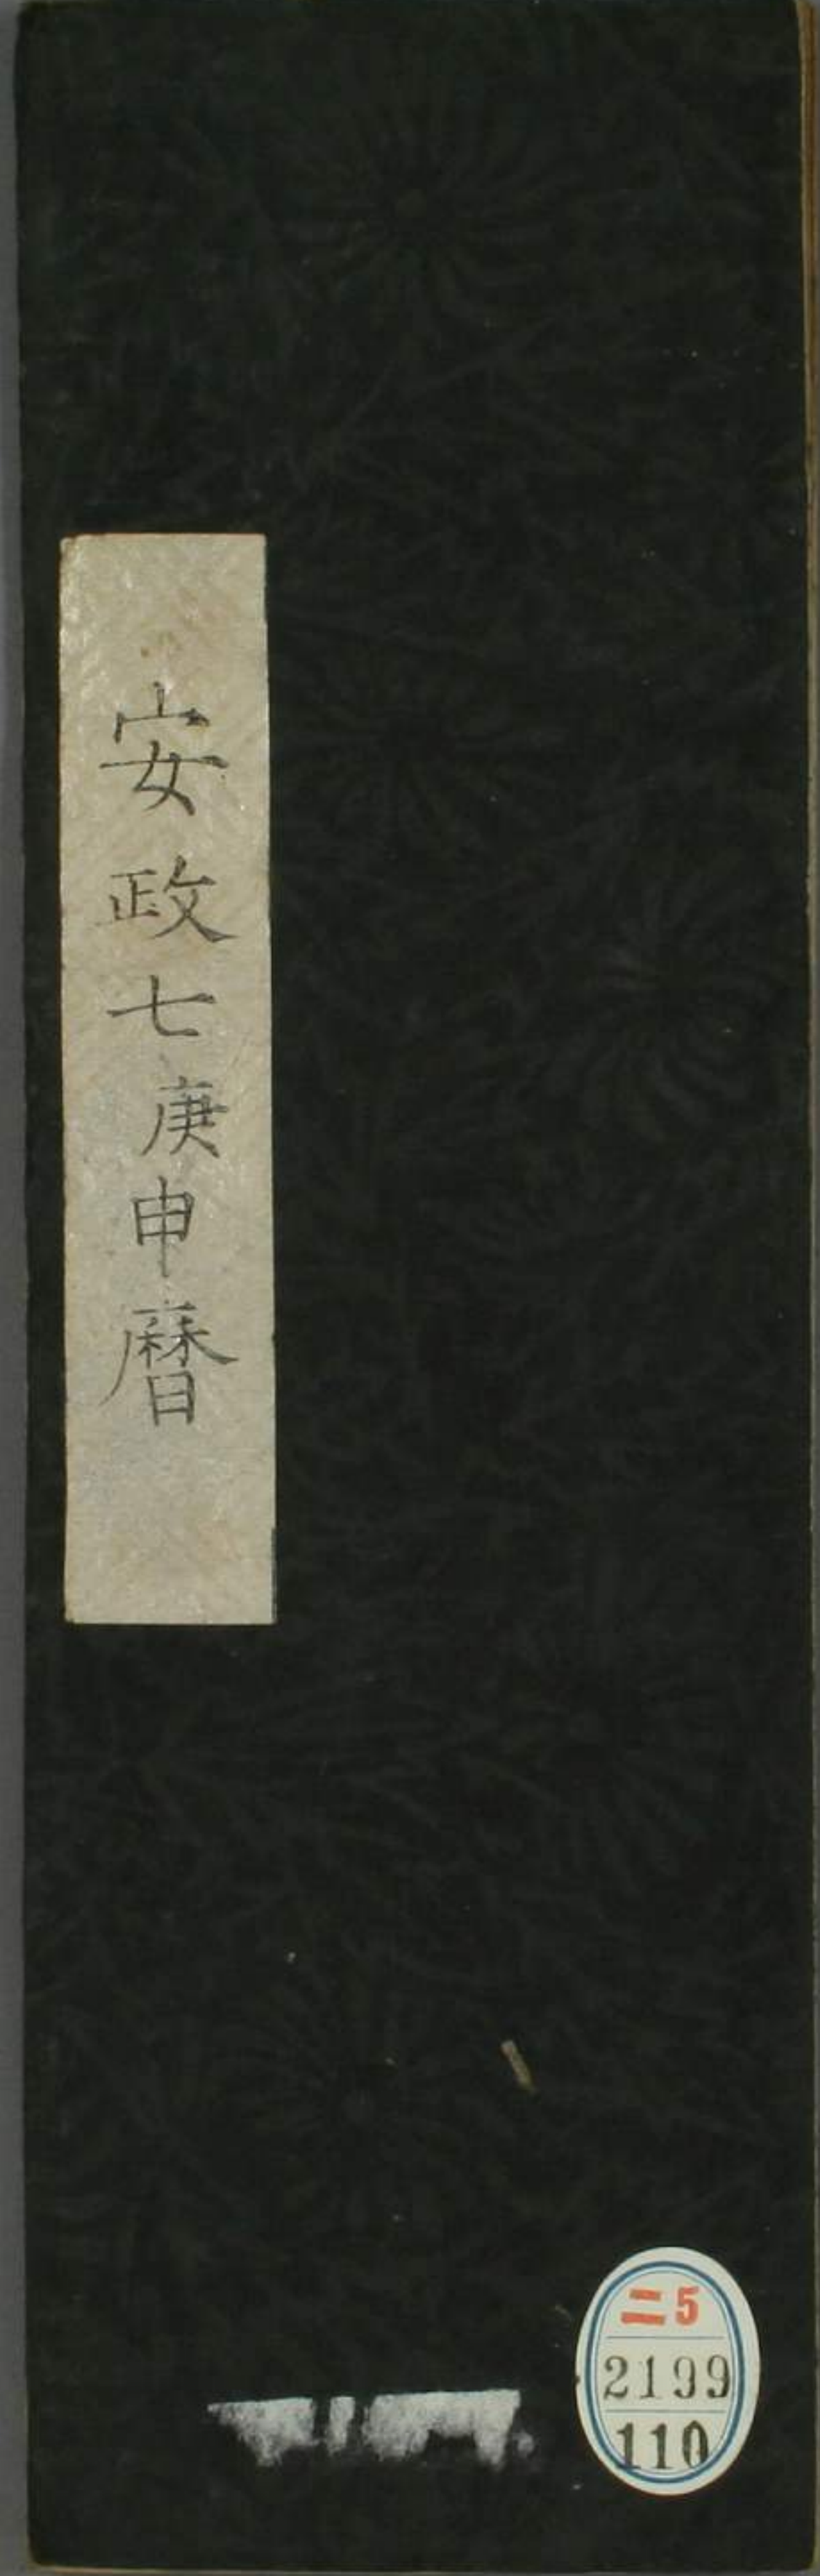 安政七庚申暦
二5
2199
110